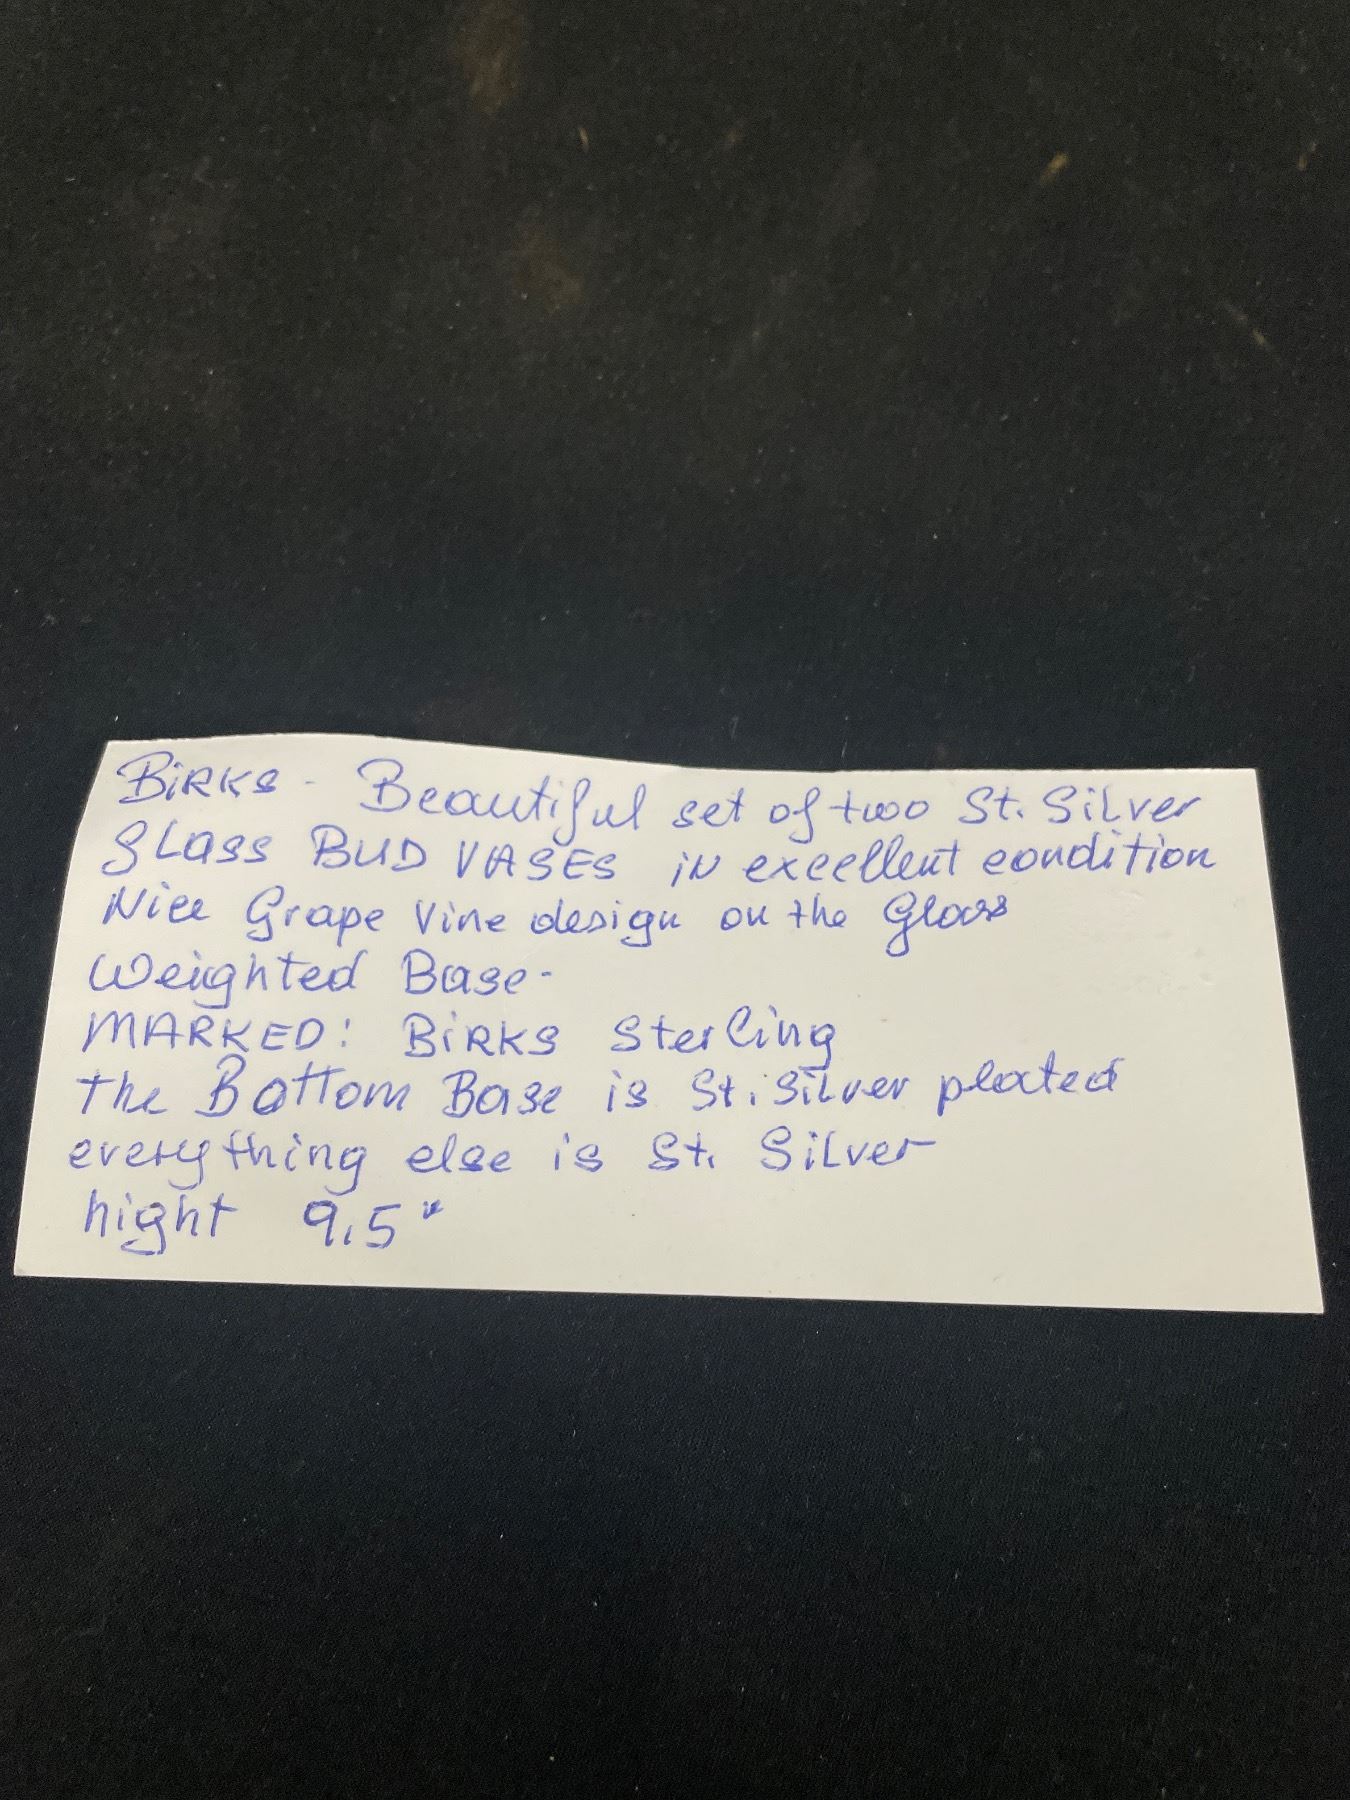 BiRKS - Beautiful set of two St. Silver
glass BUD VASES iN excellent condition
Nice Grape Vine design on the Glass
Weighted Base -
MARKED: BiRKS Sterling
the Bottom Base is St. Silver plated
everything else is St. Silver
hight 9.5"